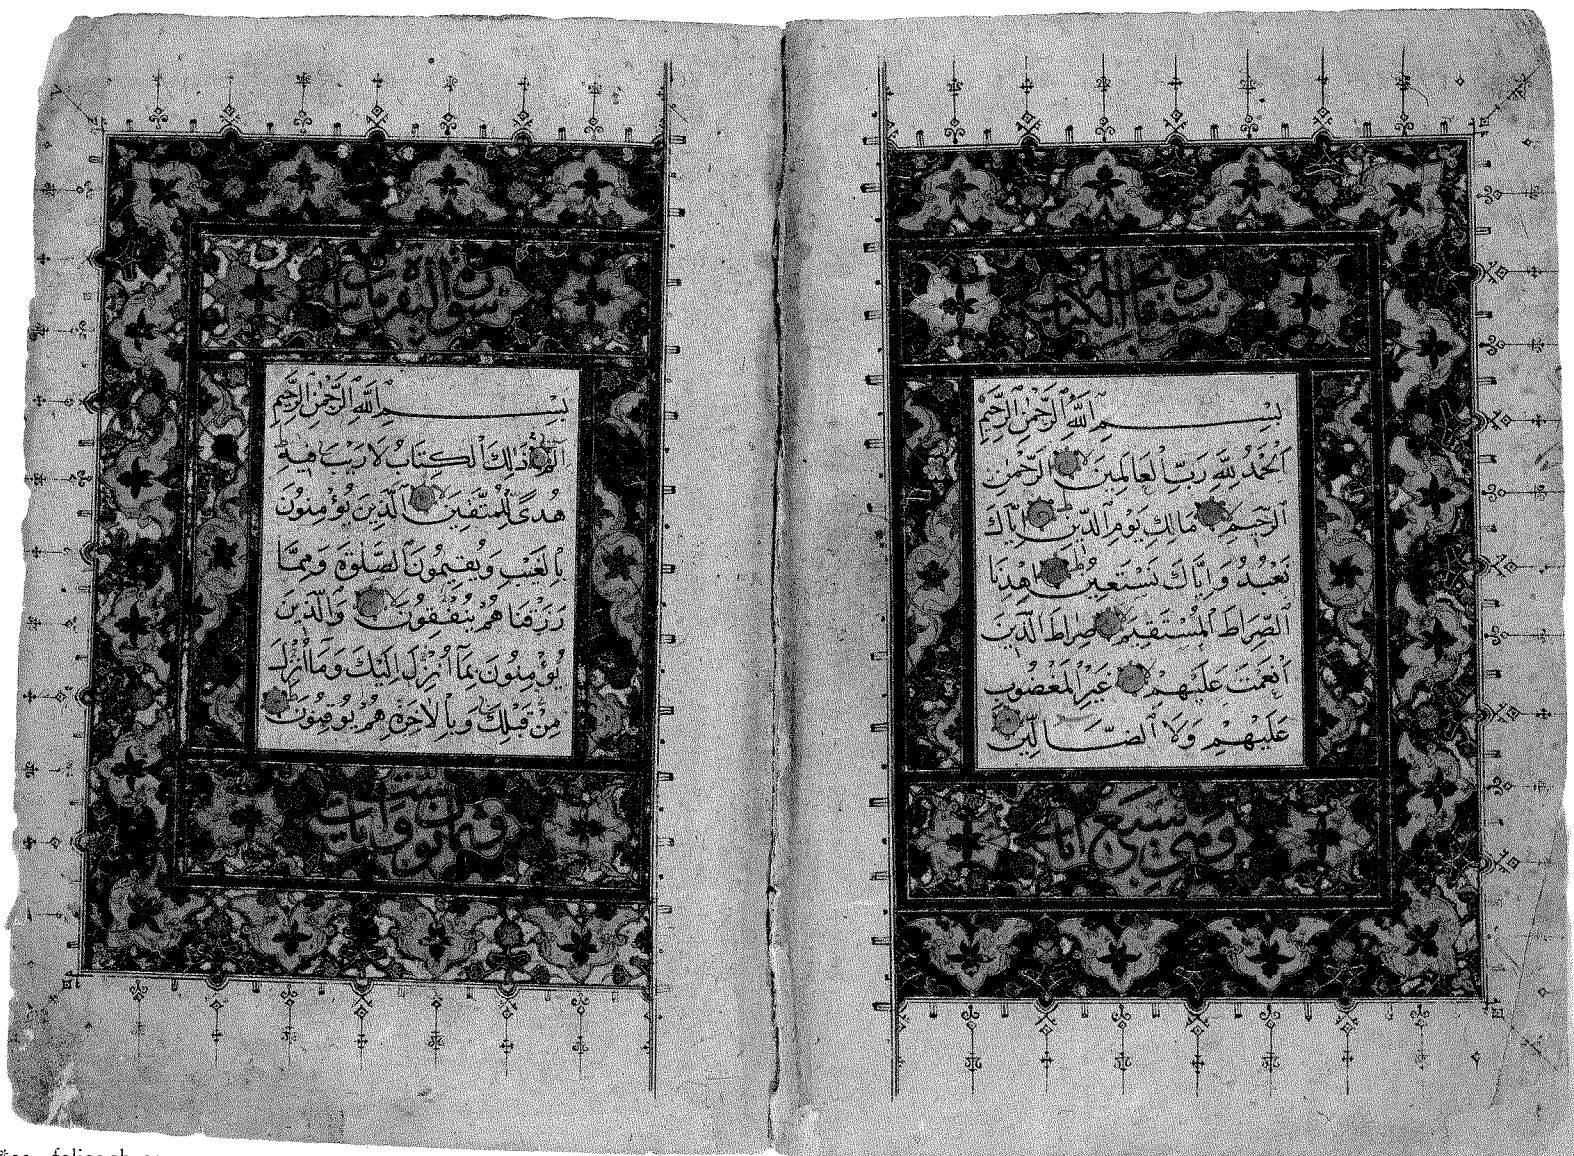 سورة فاتحة الكتاب
بِسْمِ اللَّهِ الرَّحْمٰنِ الرَّحِيمِ
اَلْحَمْدُ لِلَّهِ رَبِّ الْعَالَمِينَ الرَّحْمٰنِ
الرَّحِيمِ مَالِكِ يَوْمِ الدِّينِ إِيَّاكَ
نَعْبُدُ وَإِيَّاكَ نَسْتَعِينُ اهْدِنَا
الصِّرَاطَ الْمُسْتَقِيمَ صِرَاطَ الَّذِينَ
أَنْعَمْتَ عَلَيْهِمْ غَيْرِ الْمَغْضُوبِ
عَلَيْهِمْ وَلَا الضَّالِّينَ
وهي سبع آيات
سورة البقرة
بِسْمِ اللَّهِ الرَّحْمٰنِ الرَّحِيمِ
الٓمٓ ذَلِكَ الْكِتَابُ لَا رَيْبَ فِيهِ
هُدًى لِلْمُتَّقِينَ الَّذِينَ يُؤْمِنُونَ
بِالْغَيْبِ وَيُقِيمُونَ الصَّلٰوةَ وَمِمَّا
رَزَقْنَاهُمْ يُنْفِقُونَ وَالَّذِينَ
يُؤْمِنُونَ بِمَا أُنْزِلَ إِلَيْكَ وَمَا أُنْزِلَ
مِنْ قَبْلِكَ وَبِالْآخِرَةِ هُمْ يُوقِنُونَ